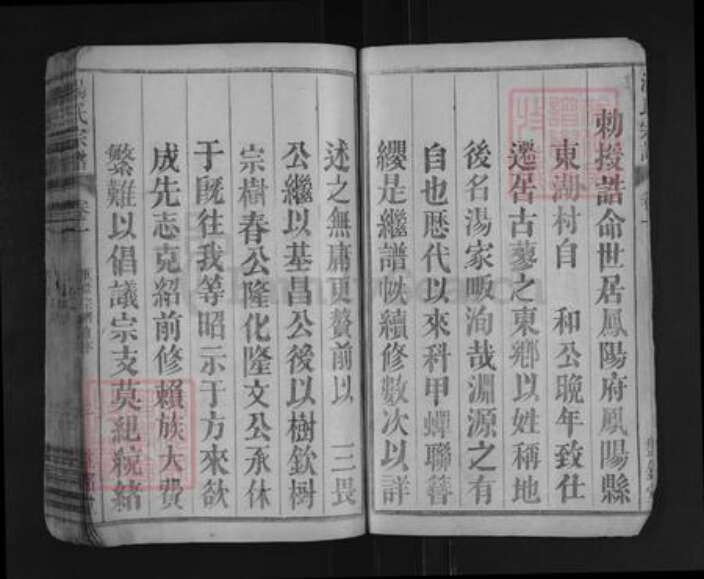 勅授誥命世居鳳陽府鳳陽縣
東湖村自　和公晚年致仕
遷居古蓼之東鄉以姓稱地
後名湯家畈洵哉淵源之有
自也歷代以來科甲蟬聯簪
纓是繼譜帙續修數次以詳
述之無庸更贅前以　三畏
公繼以基昌公後以樹欽樹
宗樹春公隆化隆文公承休
于既往我等昭示于方來欲
成先志克紹前修賴族大費
繁難以倡議宗支莫紀統緒
湯氏宗譜　卷一